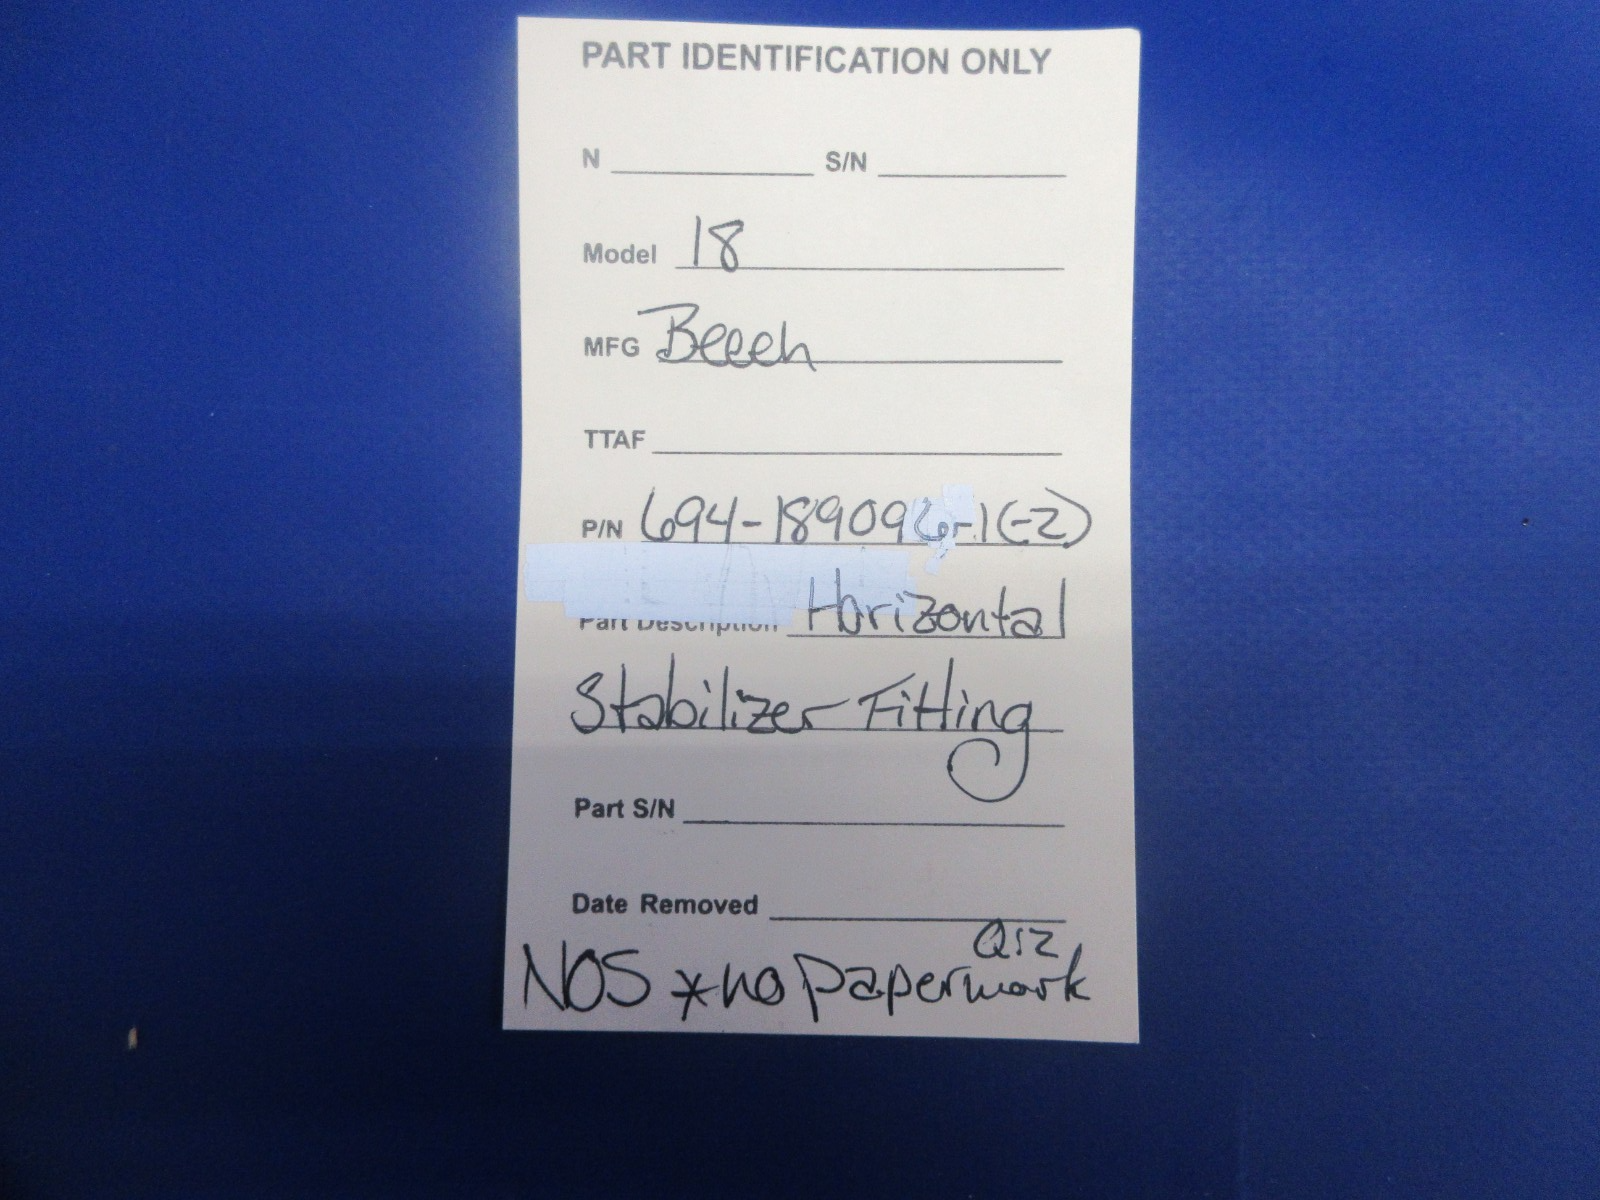 PART IDENTIFICATION ONLY
N S/N
Model 18
MFG Beech
TTAF
P/N 694-189096-1(-2)
Part Description Horizontal
Stabilizer Fitting
Part S/N
Date Removed
NOS *no paperwork